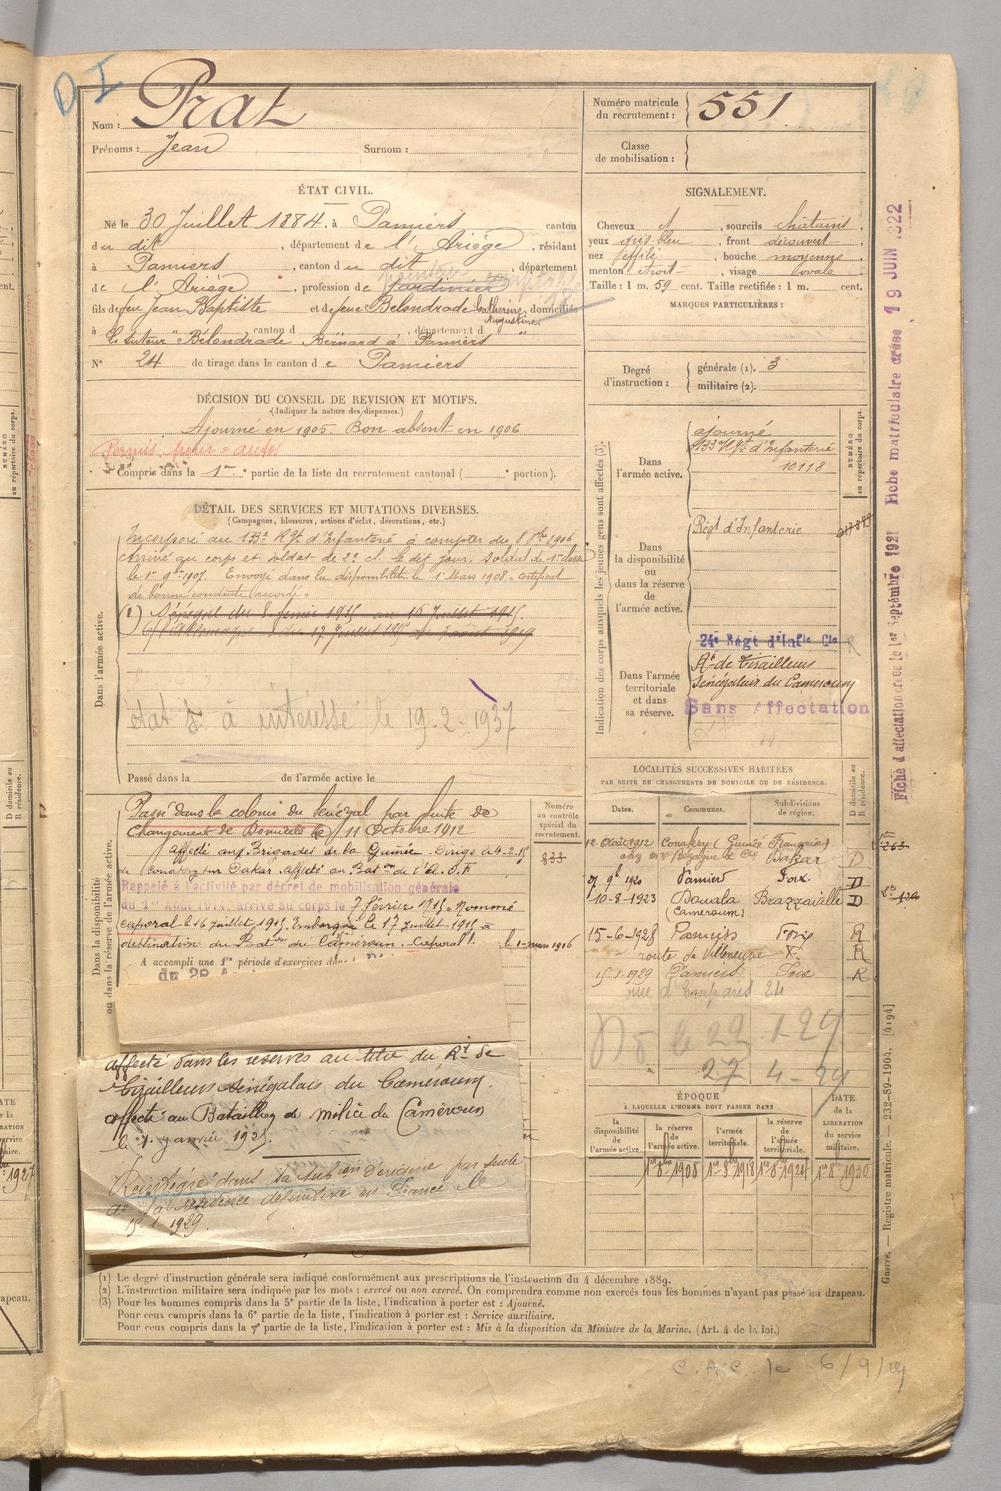 D I
Nom : Prat
Prénoms : Jean Surnom :
Numéro matricule
du recrutement : 551
Classe
de mobilisation :
ÉTAT CIVIL.
Né le 30 Juillet 1884, à Pamiers canton
du dit, département de l'Ariège, résidant
à Pamiers, canton du dit, département
de l'Ariège, profession de Jardinier
fils de feu Jean Baptiste et de feue Bélondrade Catherine Augustine, domiciliés
à canton d , département d
le tuteur Bélondrade Bernard à Pamiers
N° 24 de tirage dans le canton de Pamiers
SIGNALEMENT.
Cheveux et, sourcils châtains
yeux gris bleu, front découvert
nez effilé, bouche moyenne
menton étroit, visage ovale
Taille : 1 m. 59 cent. Taille rectifiée : 1 m. cent.
MARQUES PARTICULIÈRES :
Degré
d'instruction :
générale (1). 3
militaire (2).
DÉCISION DU CONSEIL DE REVISION ET MOTIFS.
(Indiquer la nature des dispenses.)
Ajourné en 1905. Bon absent en 1906
Compris dans la 1re partie de la liste du recrutement cantonal ( e portion).
DÉTAIL DES SERVICES ET MUTATIONS DIVERSES.
(Campagnes, blessures, actions d'éclat, décorations, etc.)
Dans l'armée active.
Incorporé au 133e Rgt d'Infanterie à compter du 8 8bre 1906
Arrivé au corps et soldat de 2e cl. le dit jour. Soldat de 1e classe
le 1er 9bre 1907. Envoyé dans la disponibilité le 1er Mars 1908. Certificat
de bonne conduite accordé.
(1) Sénégal du 8 février 1915 au 16 Juillet 1915.
état à intéressé le 19-2-1937
Passé dans la de l'armée active le
Indication des corps auxquels les jeunes gens sont affectés (3).
NUMÉRO
au répertoire du corps.
Dans
l'armée active.
ajourné
133 Rgt d'Infanterie
10118
Dans
la disponibilité
ou
dans la réserve
de
l'armée active.
Régt d'Infanterie
Dans l'armée
territoriale
et dans
sa réserve.
24e Régt d'Infie Cle
Rt de Tirailleurs
Sénégalais du Cameroun
Sans Affectation
Dans la disponibilité
ou dans la réserve de l'armée active.
Passé dans la colonie du Sénégal par suite de
Changement de Domicile le 11 Octobre 1912
affecté aux Brigades de la Guinée. Dirigé le 4-2-15
de Conakry sur Dakar affecté au Baton de l'A.O.F
Rappelé à l'activité par décret de mobilisation générale
du 1er Août 1914, arrivé au corps le 7 Février 1915. Nommé
caporal le 16 juillet 1915. Embarqué le 17 juillet 1915 à
destination du Baton du Cameroun. Caporal.
A accompli une 1re période d'exercices dans
affecté dans les réserves au titre du Rt de
Tirailleurs Sénégalais du Cameroun.
affecté au Bataillon de milice du Cameroun
le 1er janvier 1925.
Réintégré dans sa subon d'origine par suite
de sa résidence définitive en France le
15 1 1929
Numéro
au contrôle
spécial du
recrutement.
833
le 1er mars 1906
LOCALITÉS SUCCESSIVES HABITÉES
PAR SUITE DE CHANGEMENTS DE DOMICILE OU DE RÉSIDENCE.
Dates. Communes. Subdivisions
de région.
D domicile ou
R résidence.
12 Août 1912 Conakry (Guinée Française)
Dakar D
Pamiers Foix D
10-8-1923 Douala Brazzaville D
(Cameroum)
15-6-1928 Pamiers Foix R
route de Villeneuve F. R
15 1 1929 Pamiers Foix R
ÉPOQUE
À LAQUELLE L'HOMME DOIT PASSER DANS
DATE
de la
LIBÉRATION
du service
militaire.
la
disponibilité
de
l'armée active.
la réserve
de
l'armée active.
l'armée
territoriale.
la réserve
de
l'armée
territoriale.
1er 8bre 1908 1er 8bre 1918 1er 8bre 1924 1er 8bre 1930
(1) Le degré d'instruction générale sera indiqué conformément aux prescriptions de l'instruction du 4 décembre 1889.
(2) L'instruction militaire sera indiquée par les mots : exercé ou non exercé. On comprendra comme non exercés tous les hommes n'ayant pas passé au drapeau.
(3) Pour les hommes compris dans la 5e partie de la liste, l'indication à porter est : Ajourné.
Pour ceux compris dans la 6e partie de la liste, l'indication à porter est : Service auxiliaire.
Pour ceux compris dans la 7e partie de la liste, l'indication à porter est : Mis à la disposition du Ministre de la Marine. (Art. 4 de la loi.)
Guerre. — Registre matricule. — 232-89-1904. [4194]
Fiche d'affectation créée le 1er Septembre 1921 Fiche matriculaire créée 19 JUIN 1922
C.A.C. le 6/9/29